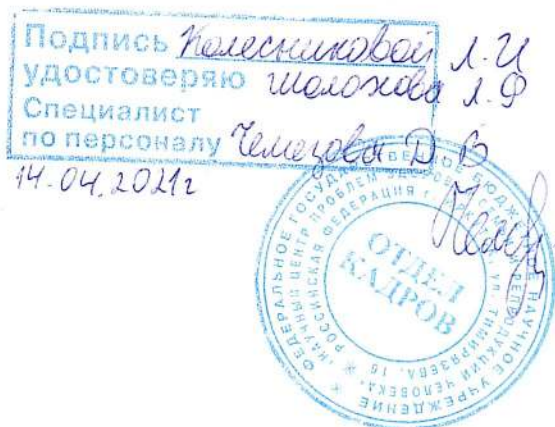 Подпись Колесниковой Л.И
удостоверяю Шолохова Л.Ф
Специалист
по персоналу Чемезова Д В
14.04.2021г
ФЕДЕРАЛЬНОЕ ГОСУДАРСТВЕННОЕ БЮДЖЕТНОЕ НАУЧНОЕ УЧРЕЖДЕНИЕ
«НАУЧНЫЙ ЦЕНТР ПРОБЛЕМ ЗДОРОВЬЯ СЕМЬИ И РЕПРОДУКЦИИ ЧЕЛОВЕКА»
РОССИЙСКАЯ ФЕДЕРАЦИЯ г. ул. ТИМИРЯЗЕВА, 16
ОТДЕЛ
КАДРОВ